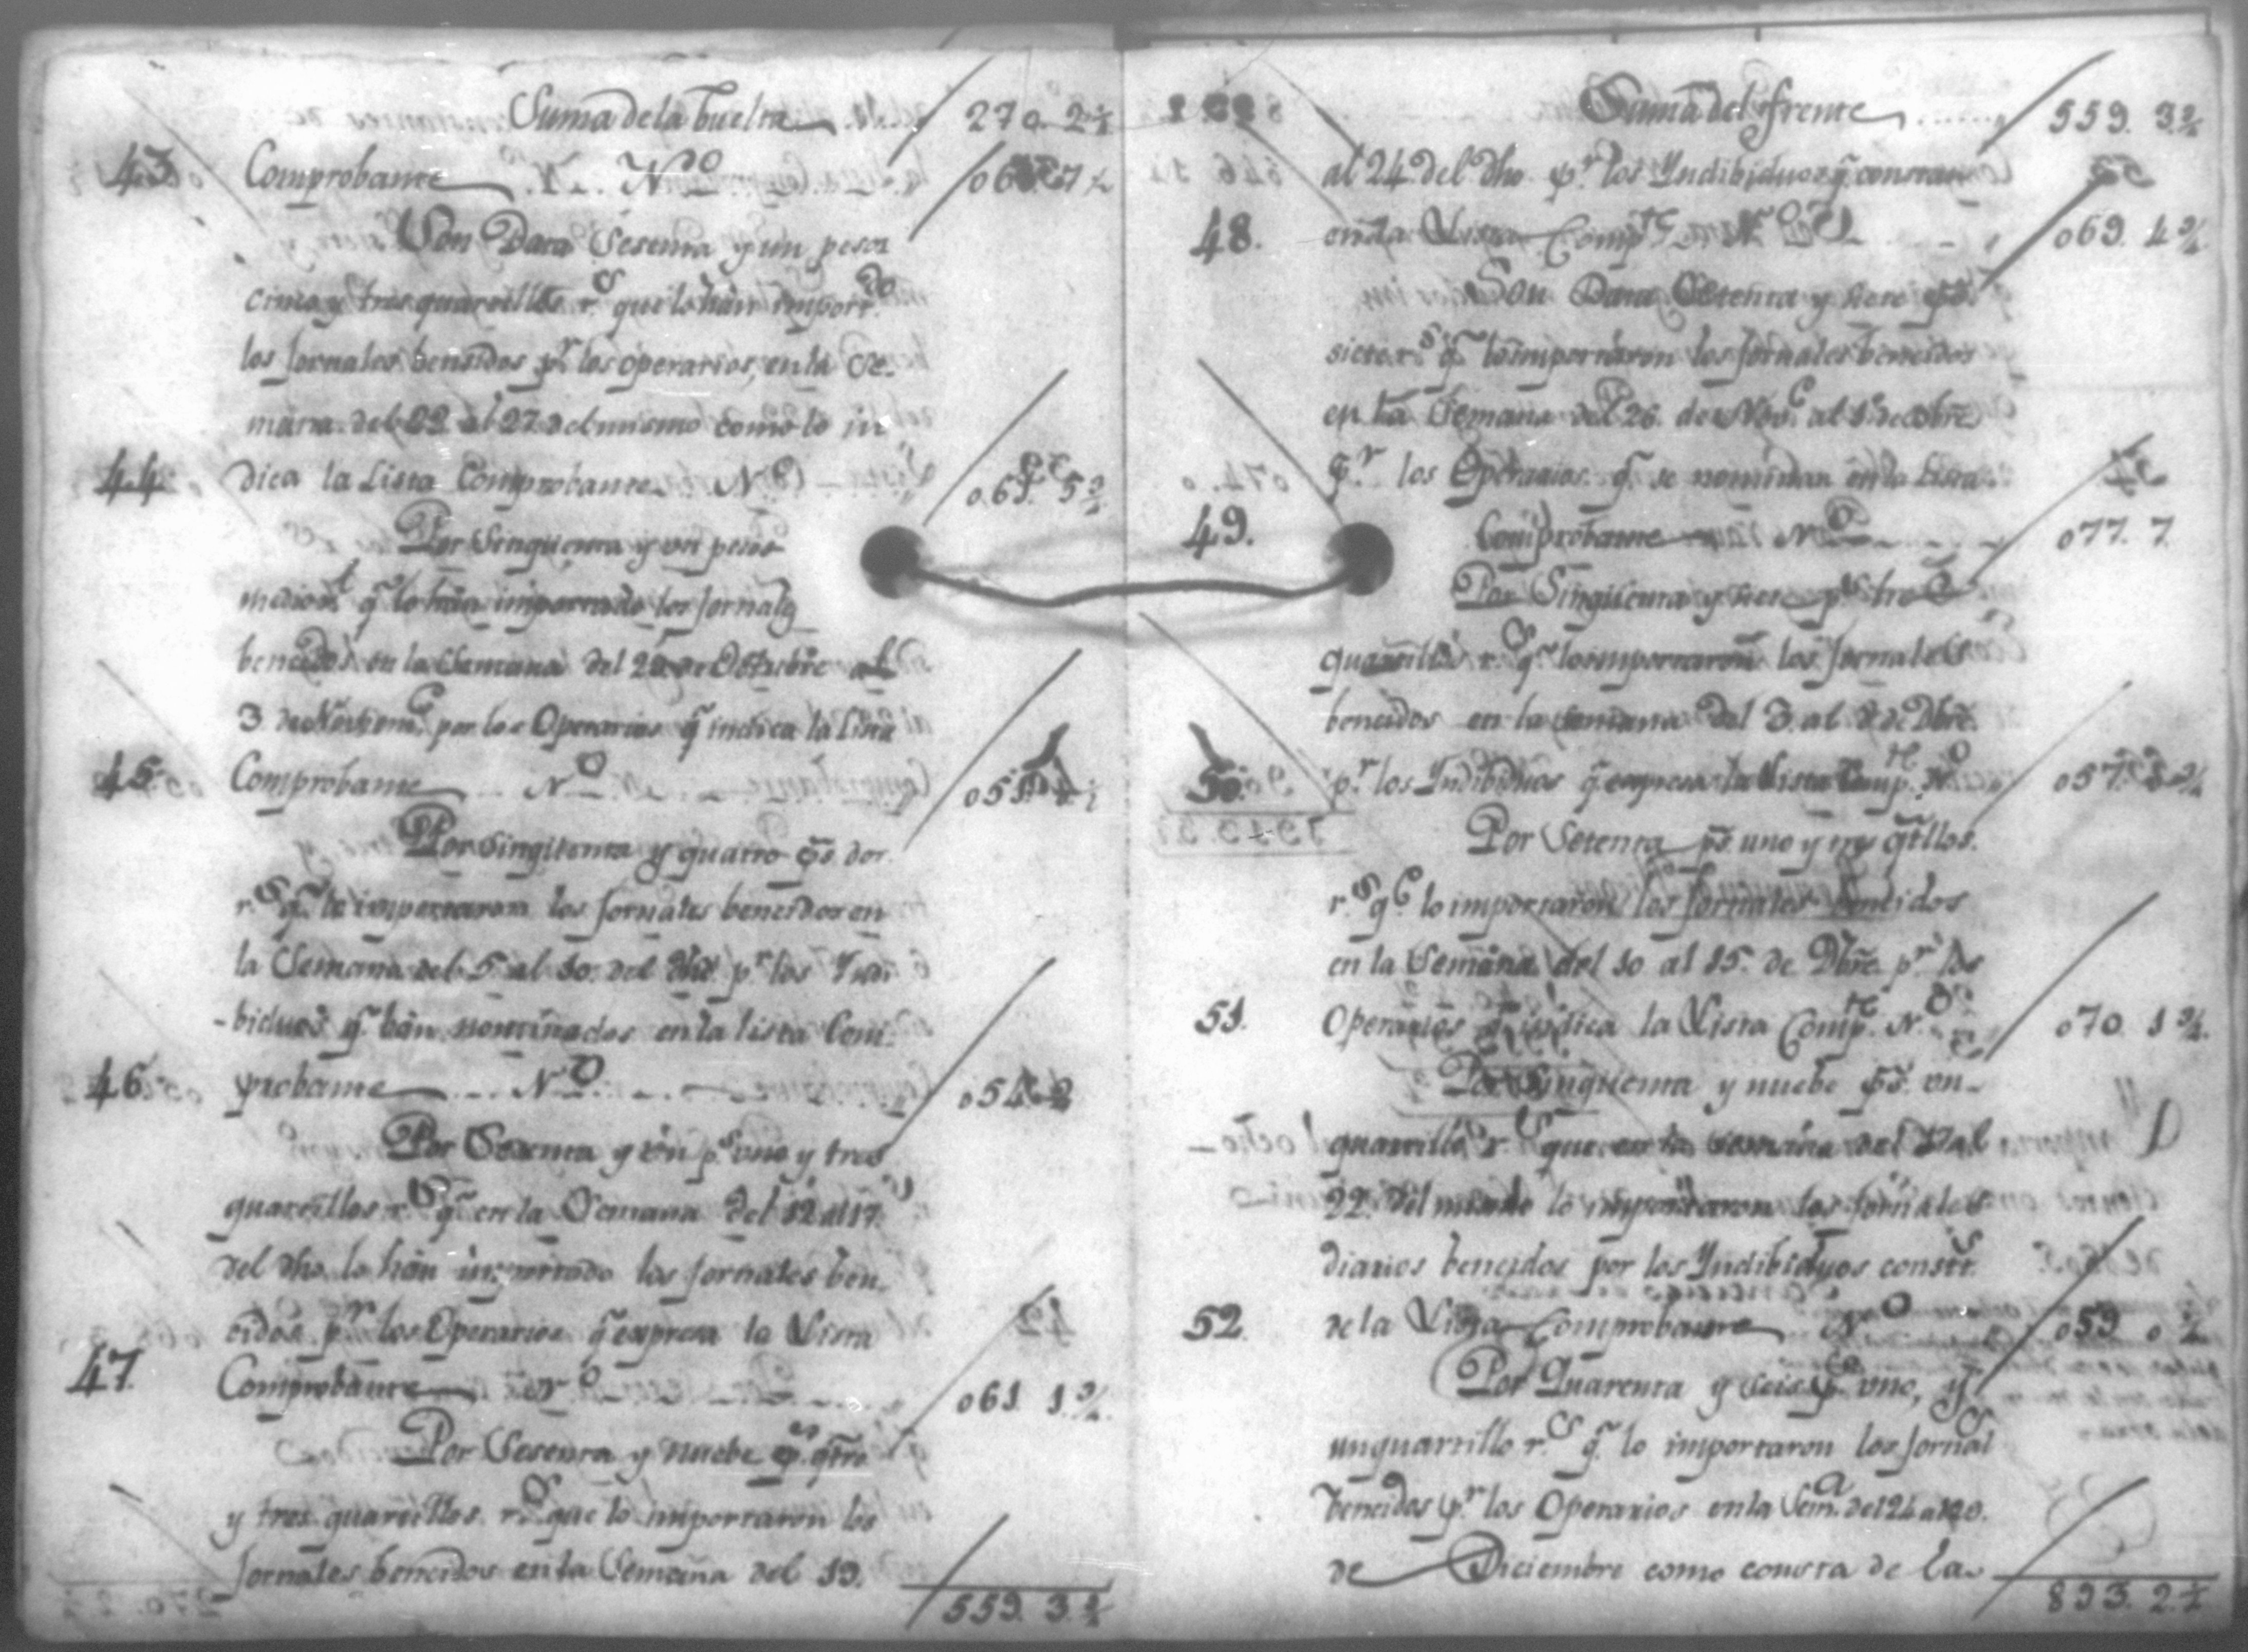 Suma de la buelta 270. 2 1/2
43 Comprobante N.º
Son Data Sesenta y un pesos
cinco y tres quarcillos r.s que lo hán import.do
los Jornales bensidos p.r los operarios, en la Se-
mana del 22 al 27 del mismo como lo in
44 dica la Lista Comprobante N.º 061. 5 3/4
Por Sinquenta y un pesos
medio r.l q.e lo hán importado los Jornal.s
bencidos en la Semana del 29 de Octubre al
3 de Noviem.e por los Operarios q.e indica la Lista
45 Comprobante N.º 051.
Por Sinquenta y quatro p.s dos
r.s q.e lo importaron los Jornales bencidos en
la Semana del 5 al 10. del dho p.r los Yndi
-biduos q.e bán nominados en la lista Com-
46 probante N.º 054. 2
Por Sesenta y ún p.s uno y tres
quarcillos r.s q.e en la Semana del 12 al 17.
del dho lo hán importado los Jornales ben-
cidos p.r los Operarios q.e expresa la Lista
47. Comprobante N.º 061 1. 3/4.
Por Sesenta y nuebe p.s q̃tro
y tres quarcillos r.s que lo importaron los
Jornales bencidos en la Semana del 19.
559. 3. 3/4
Suma del frente 559. 3. 3/4
al 24 del dho p.r los Yndibiduos q.e constan
48. en la Lista Comp.te N.º 069. 4 3/4
Son Data Setenta y siete p.s
siete r.s q.e lo importaron los Jornales bencidos
en la Semana del 26. de Nov.e al 1.º de Dbre
p.r los Operarios q.e se nominan en la Lista
49. Comprobante N.º 077. 7.
Por Sinquenta y siete p.s tres
quarcillos r.s q.e lo importaron los Jornales
bencidos en la semana del 3. al 8 de Dbre.
50. p.r los Yndibiduos q.e expresa la Lista Comp.te N.º 057. 3/4
Por Setenta p.s uno y tres q̃tllos.
r.s q.e lo importaron los Jornales bencidos
en la Semana del 10 al 15. de Dbre p.r los
51. Operarios q.e indica la Lista Comp.te N.º 070. 1 3/4.
Por Sinquenta y nuebe p.s un-
quarcillo r.s que en la semana del 17 al
22. del mismo lo importaron los Jornales
diarios bencidos por los Yndibiduos const.s
52. de la Lista Comprobante N.º 059 0 1/4
Por Quarenta y seis p.s uno, y
un quartillo r.s q.e lo importaron los Jornal.s
bencidos p.r los Operarios en la Sem.a del 24 al 29.
de Diciembre como consta de la
893. 2. 1/4